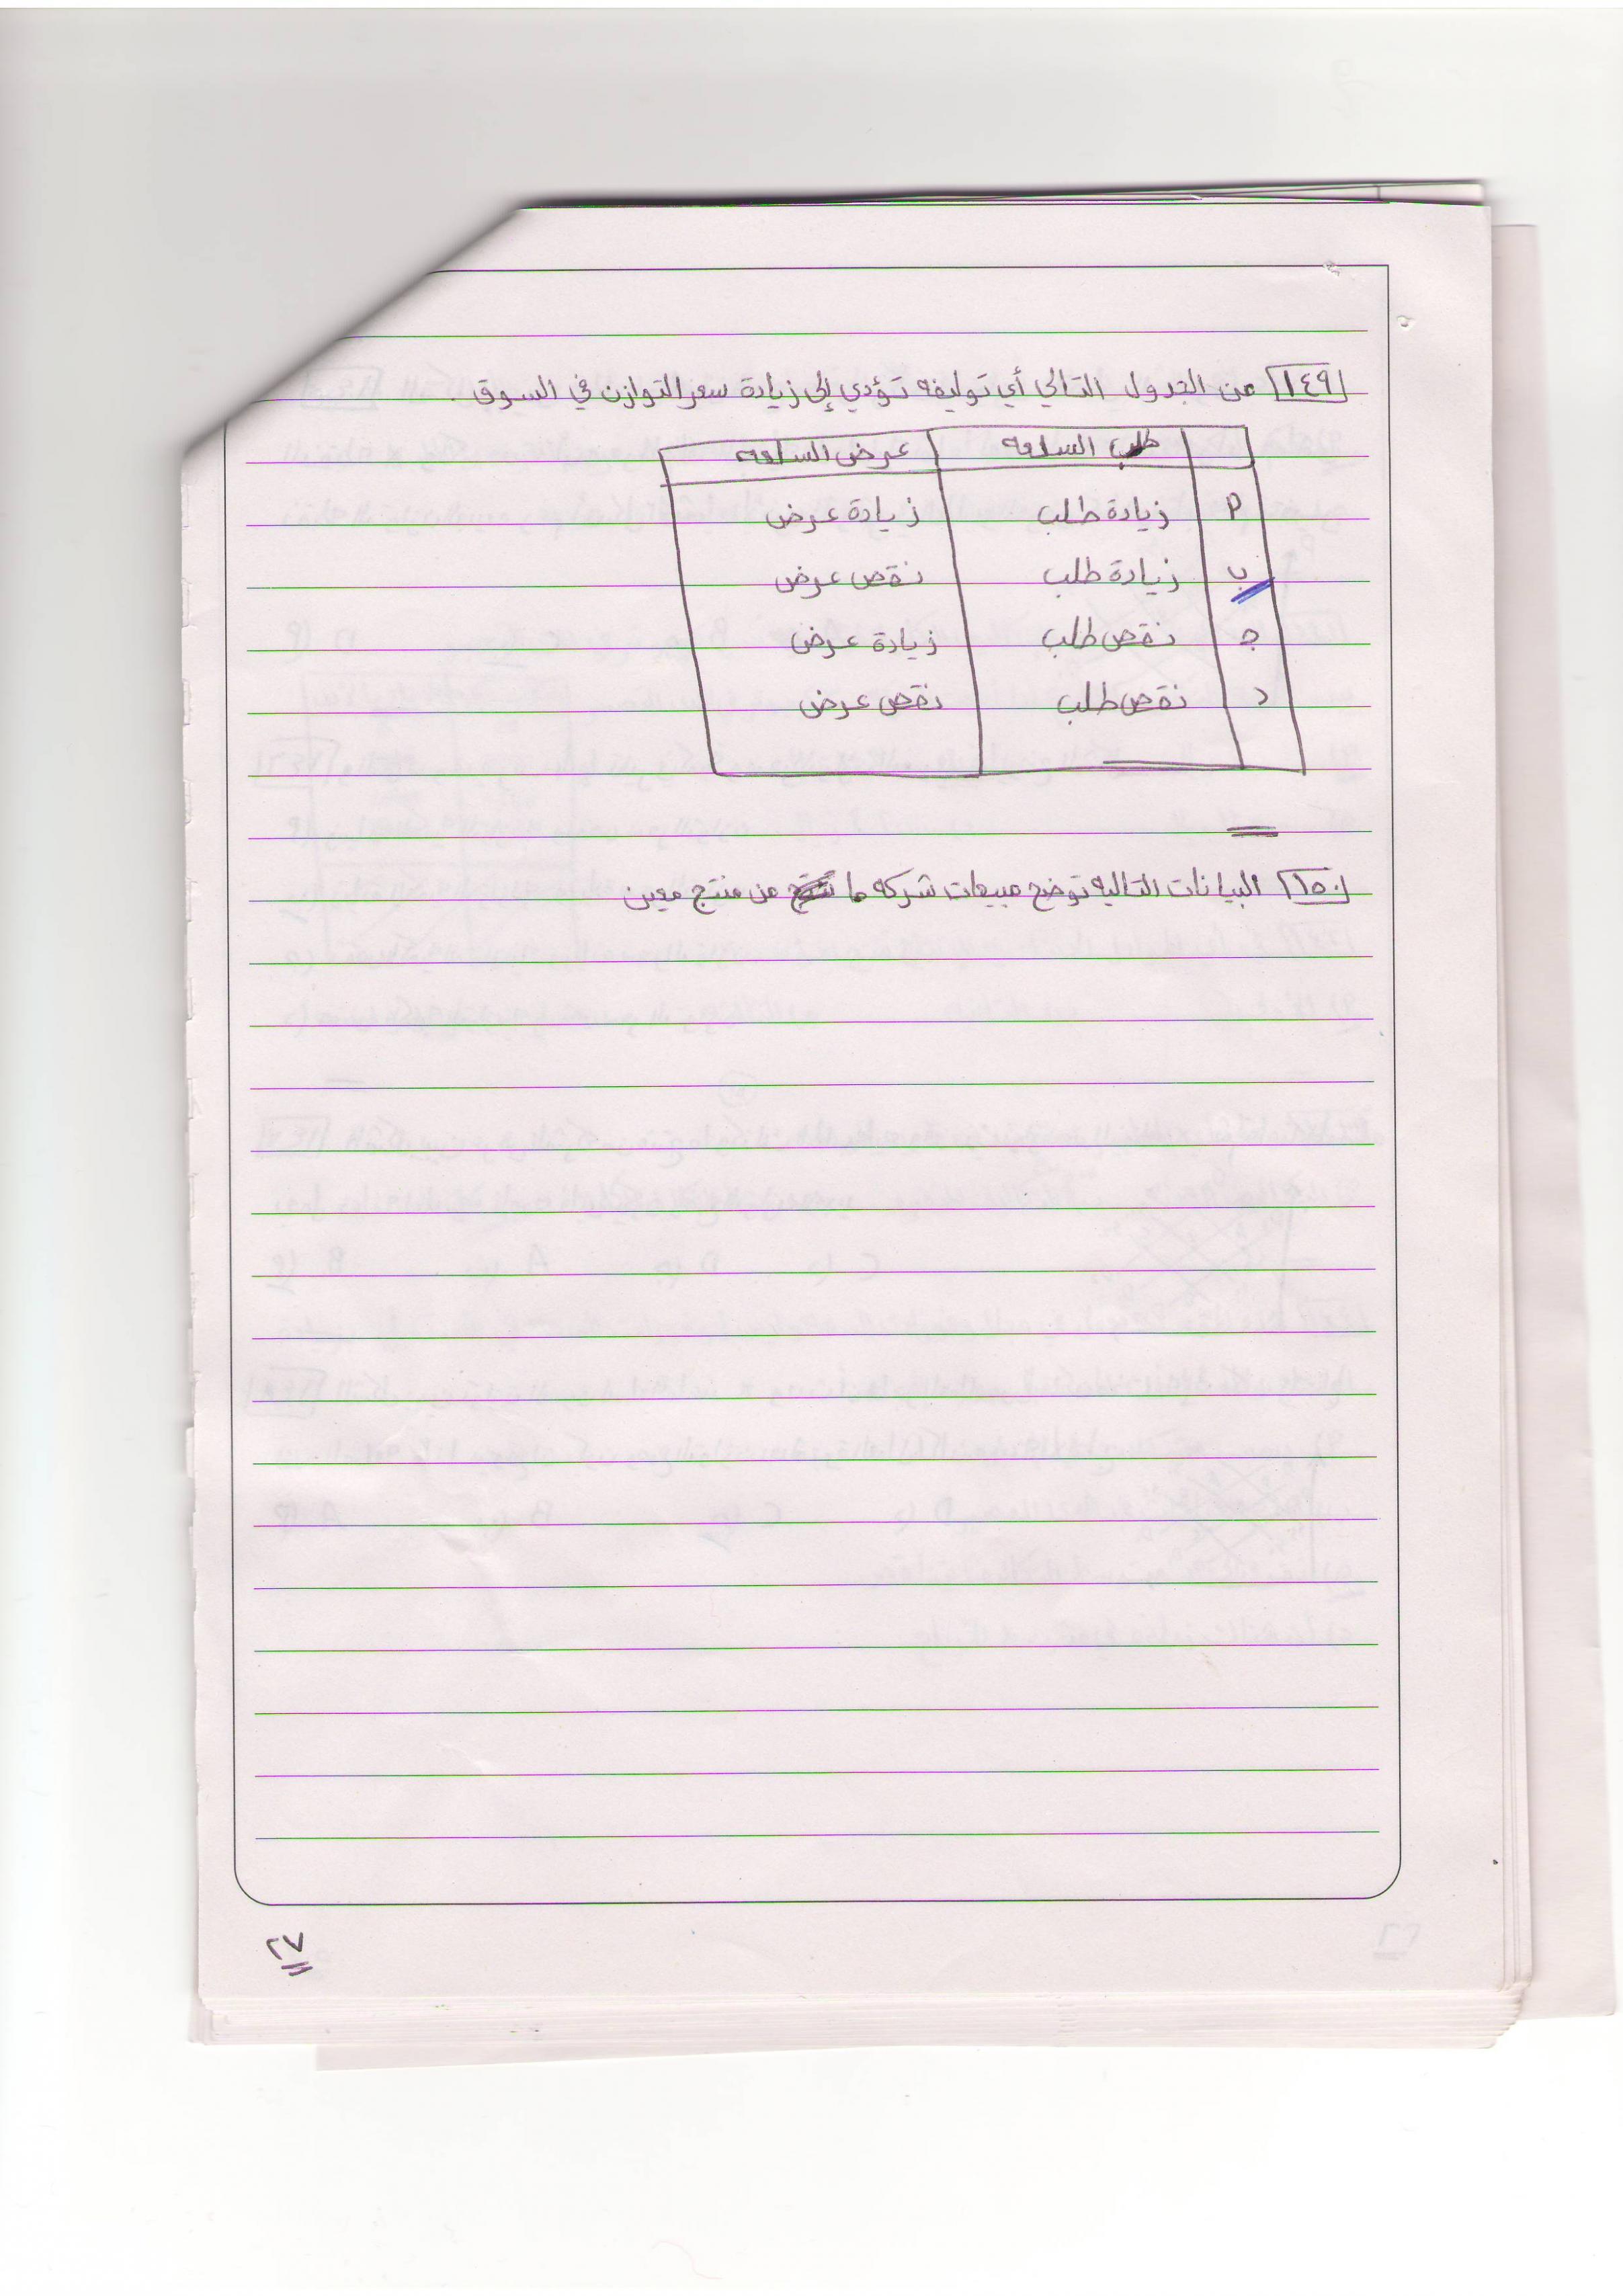 ١٤٩ من الجدول التالي أي توليفه تؤدي إلى زيادة سعر التوازن في السوق .
طلب السلعه عرض السلعه
أ زيادة طلب زيادة عرض
ب زيادة طلب نقص عرض
ج نقص طلب زيادة عرض
د نقص طلب نقص عرض
١٥٠ البيانات التاليه توضح مبيعات شركه ما من منتج معين
٢٧